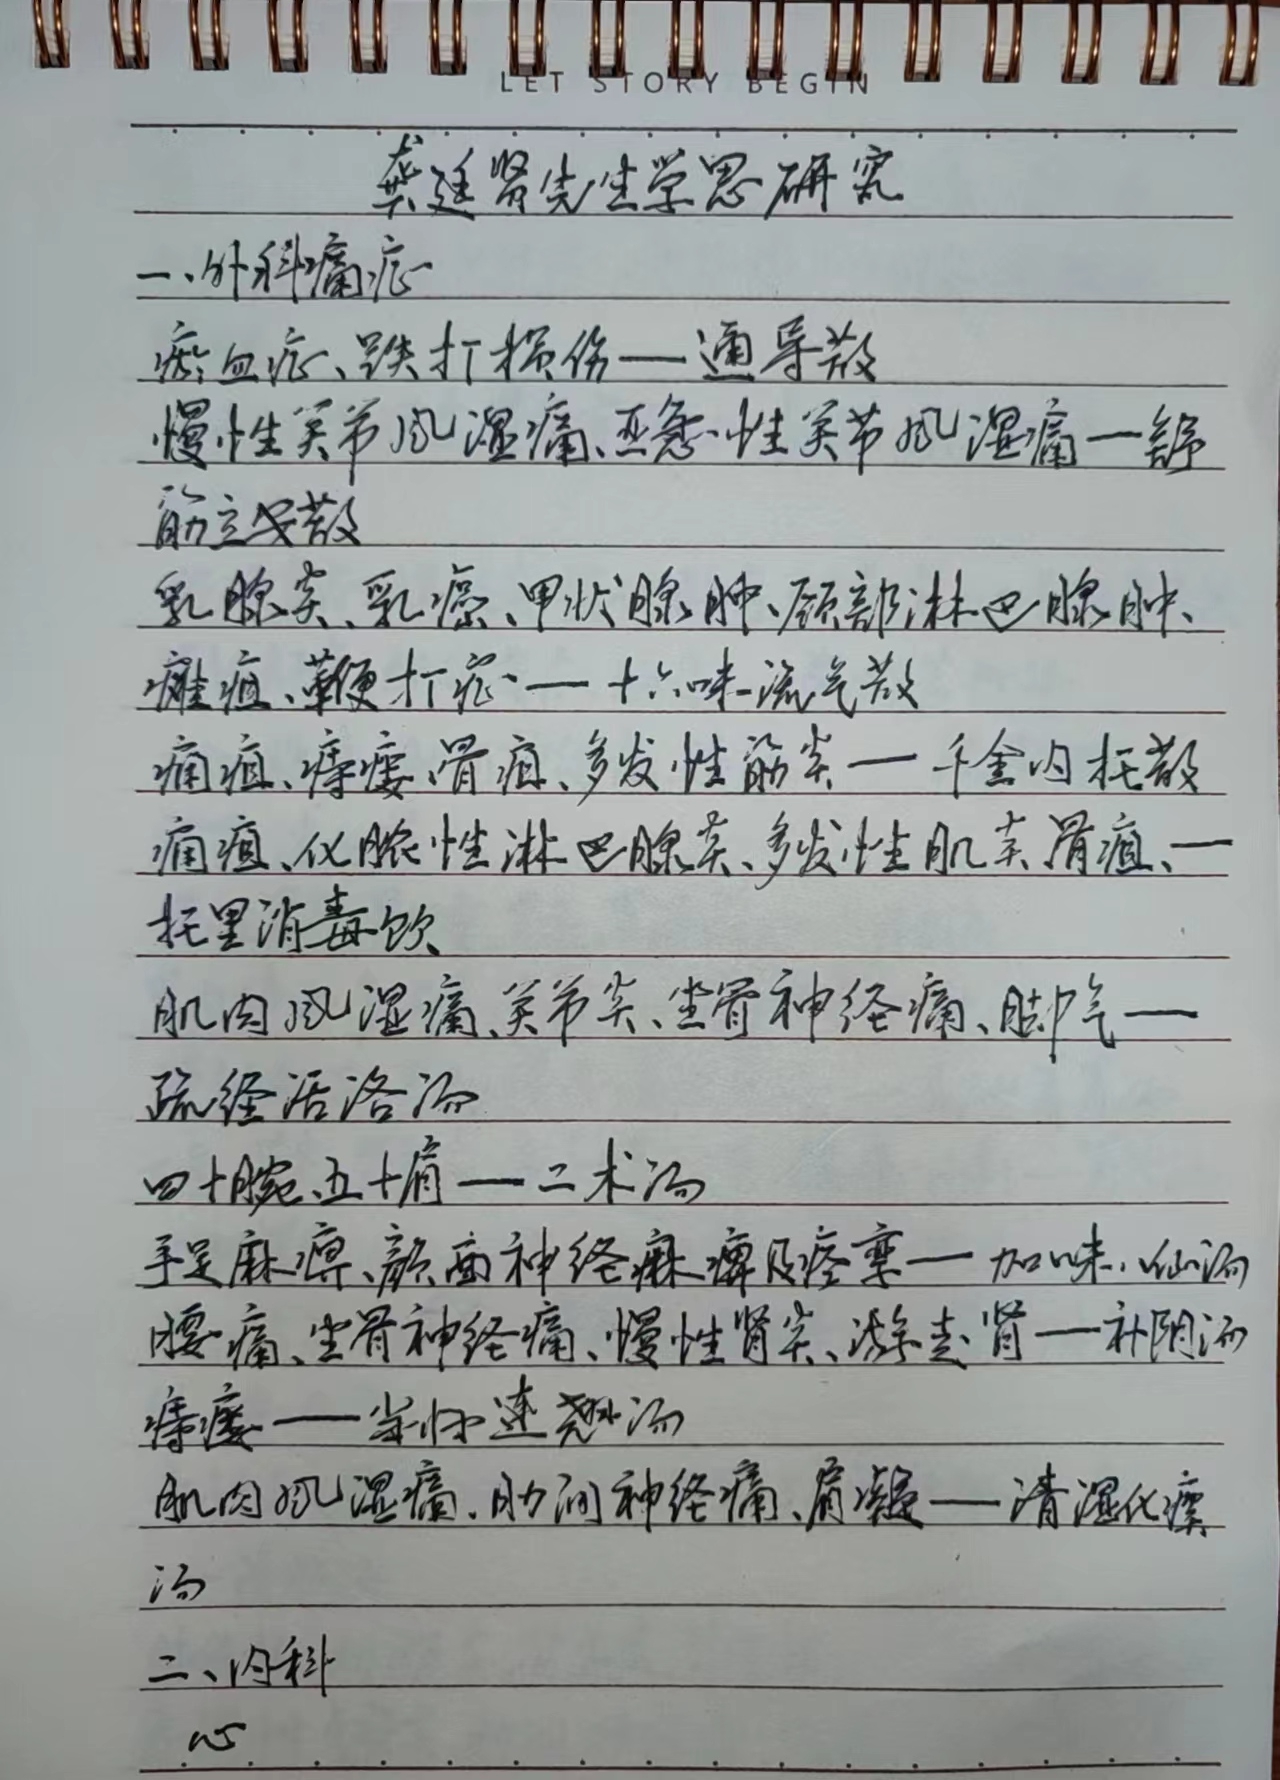 LET STORY BEGIN
龚廷贤先生学思研究
一、外科痛症
瘀血症、跌打损伤——通导散
慢性关节风湿痛、亚急性关节风湿痛—舒
筋立安散
乳腺炎、乳癌、甲状腺肿、颈部淋巴腺肿、
痈疽、鞭打症——十六味流气散
痈疽、痔瘘、骨疽、多发性筋炎——千金内托散
痈疽、化脓性淋巴腺炎、多发性肌炎、骨疽、—
托里消毒饮
肌肉风湿痛、关节炎、坐骨神经痛、脚气——
疏经活洛汤
四十腕、五十肩——二术汤
手足麻痹、颜面神经麻痹及痉挛——加味八仙汤
腰痛、坐骨神经痛、慢性肾炎、游走肾——补阴汤
痔瘘——当归连翘汤
肌肉风湿痛、肋间神经痛、肩凝——清湿化痰
汤
二、内科
心